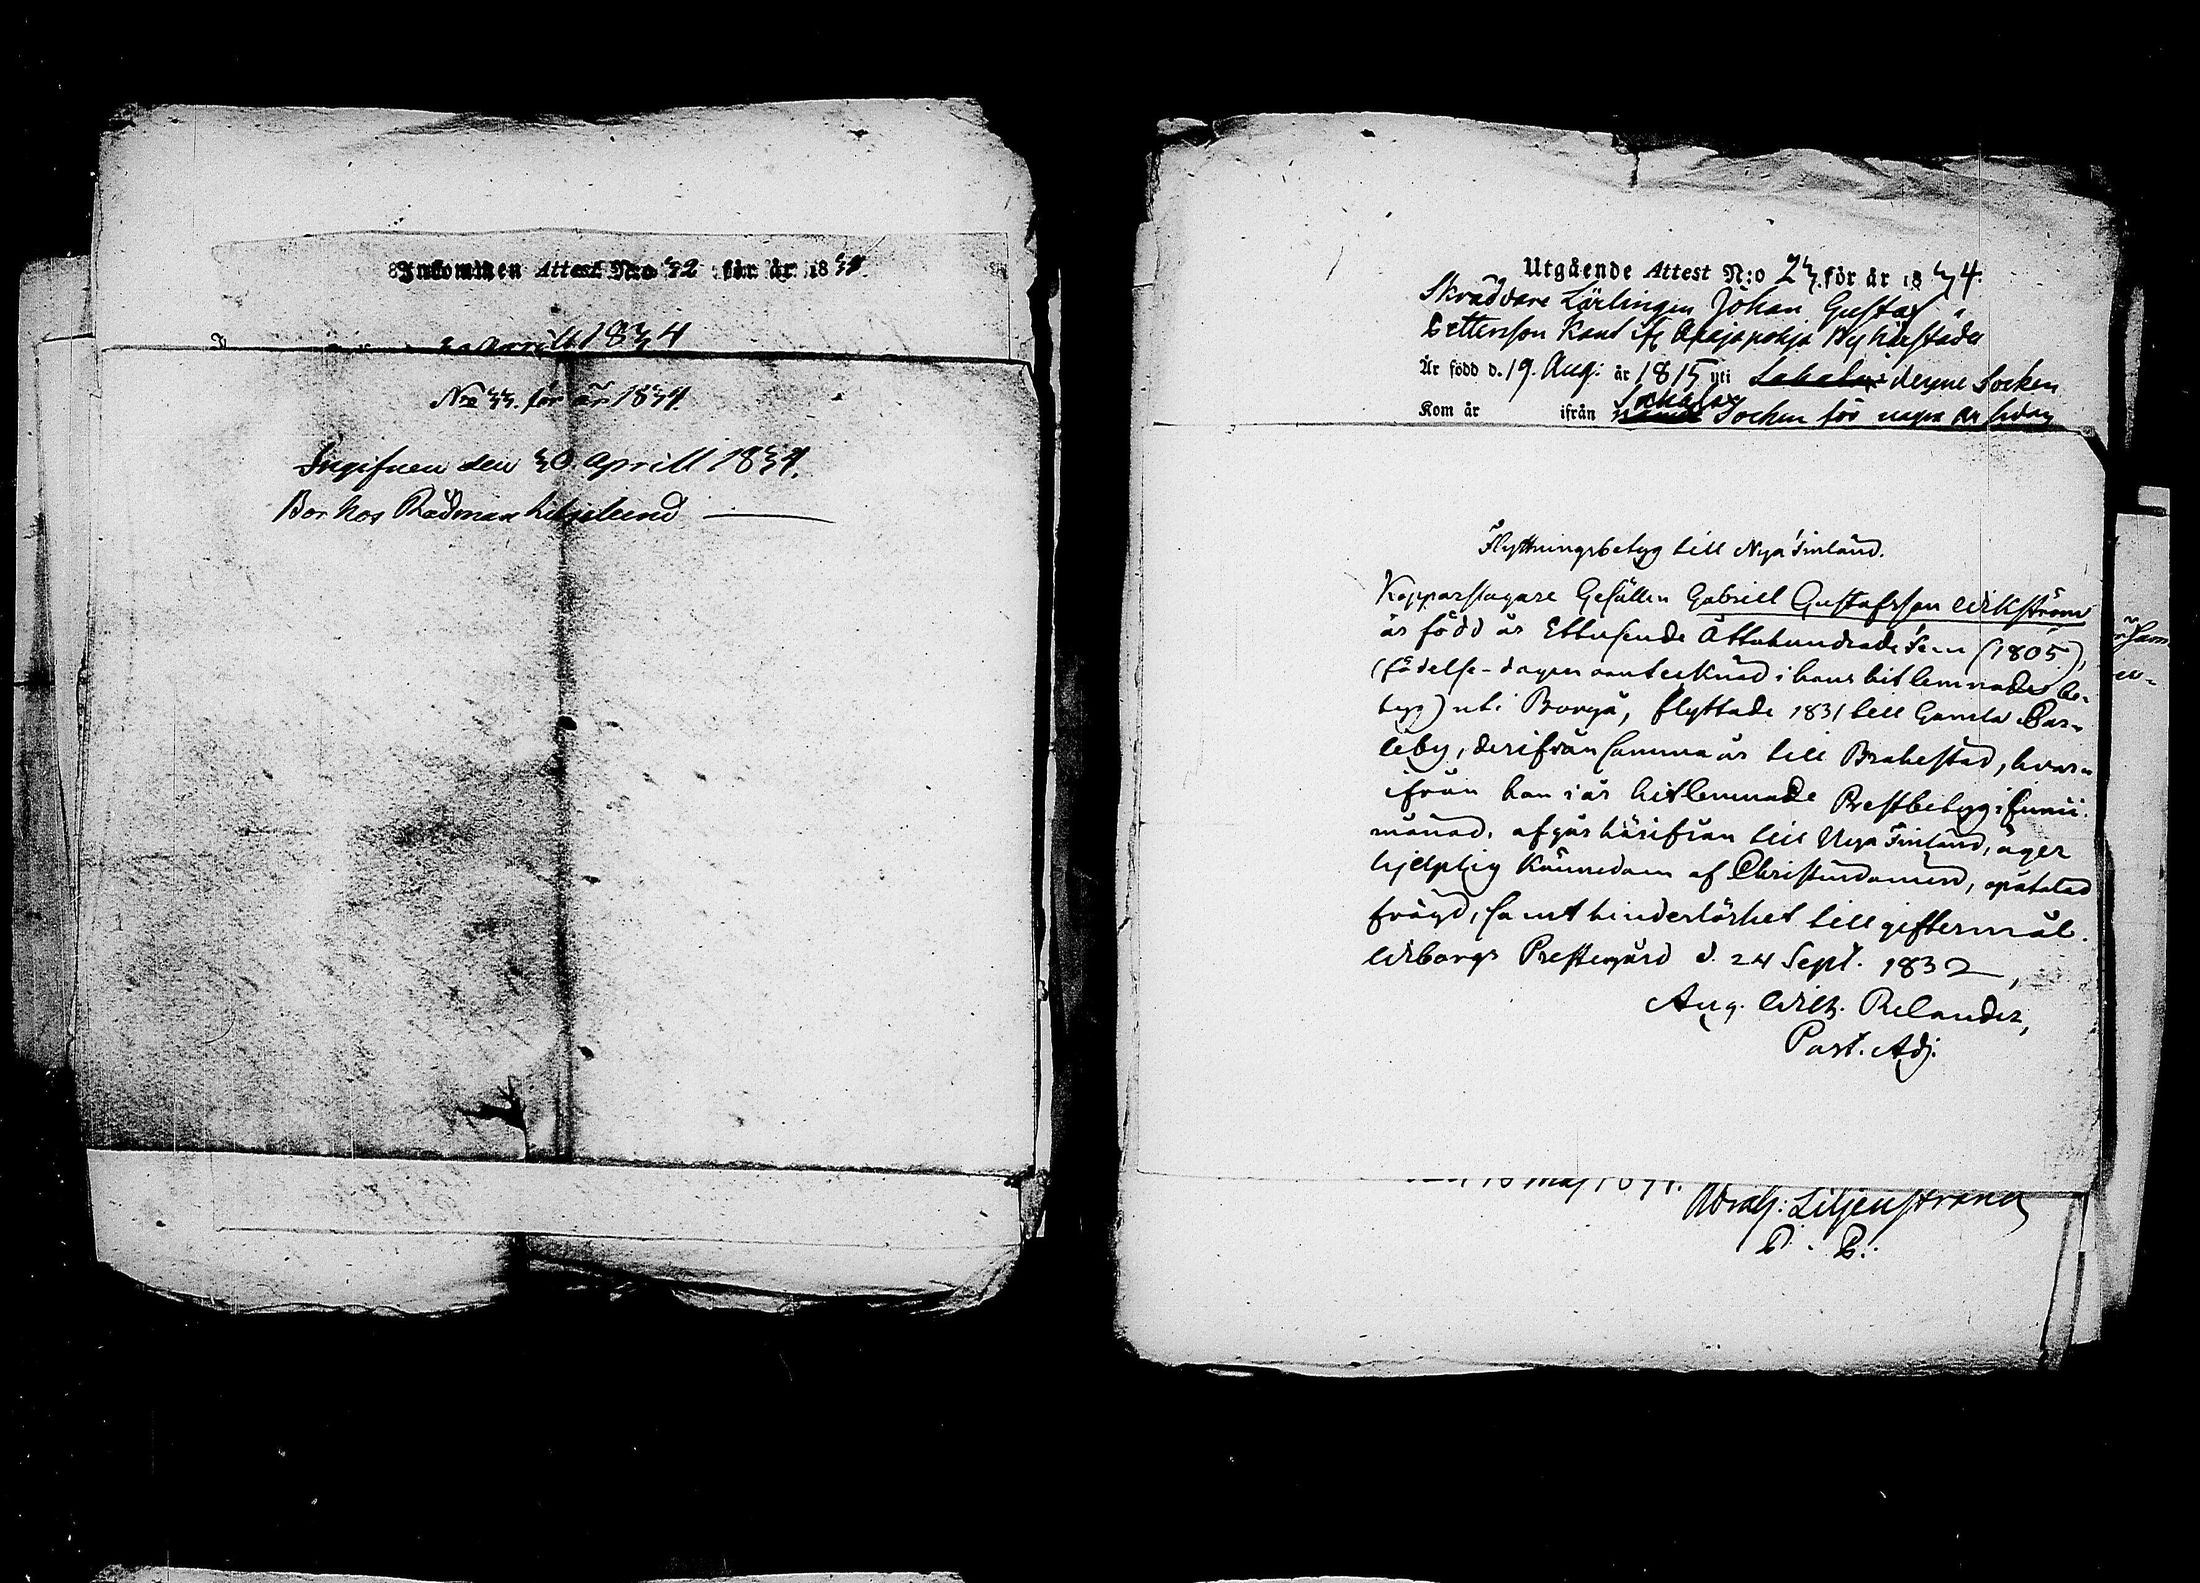 Inkommen Attest N:o 32 för år 1834
Aprill 1834
N:o 33. för år 1834.
Ingifven den 30 Aprill 1834.
Bor hos Rådman Liljelund
Utgående Attest N:o 23. för år 1834.
Skräddare Lärlingen Johan Gustaf
Pettersson
By härstädes
Är född d. 19. Aug: år 1815 uti denne Socken
Kom år ifrån Socken för några år sedan
Flyttningsbetyg till Nya Finland.
Kopparslagare Gesällen Gabriel Gustafsson Wikström
är född år Ettusende Åttahundrade Fem (1805),
(födelse-dagen oantecknad i hans hit lemnade be-
tyg) uti Borgå, flyttade 1831 till Gamla Car-
leby, derifrån samma år till Brahestad, hvar-
ifrån han i år hitlemnade Prestbetyg i Junii
månad, afgår härifrån till Nya Finland, äger
hjelplig Kännedom af Christendomen, opåtalad
frägd, samt hinderlöshet till giftermål.
Wiborgs Prestegård d. 24 Sept. 1832,
Aug. Wilh. Relander,
Past. Adj.
Maj 1834.
Abrah: Liljenstrand
P. P.